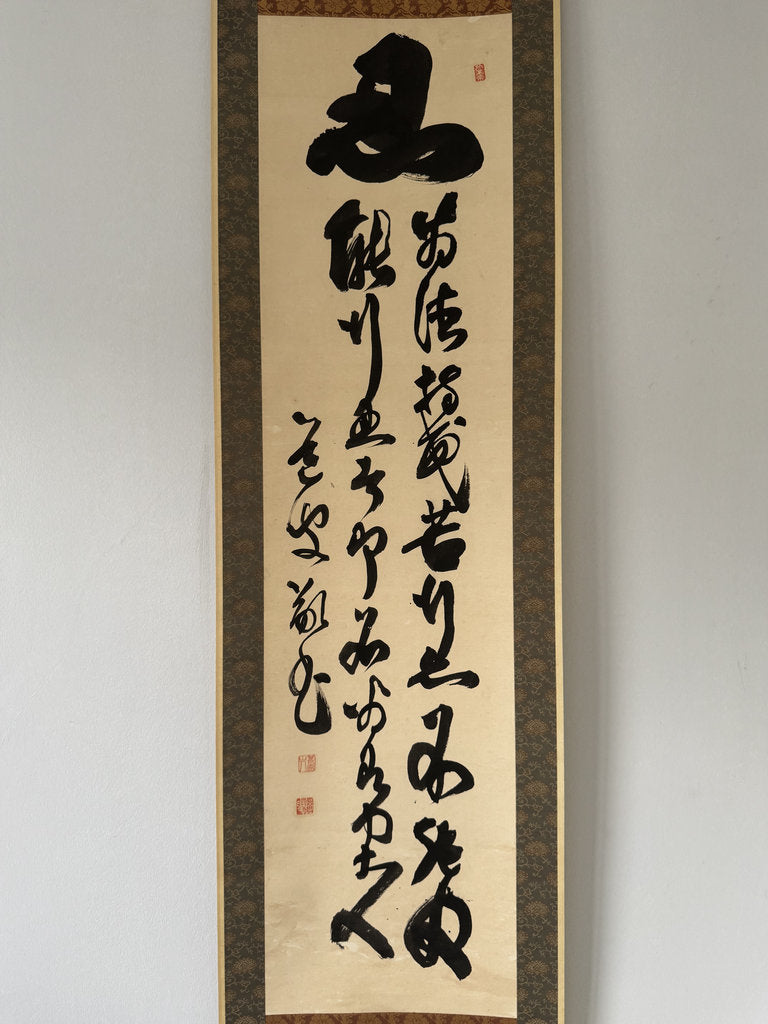 忍
為徳持戒苦行所不能及
能行忍者即名為有力大人